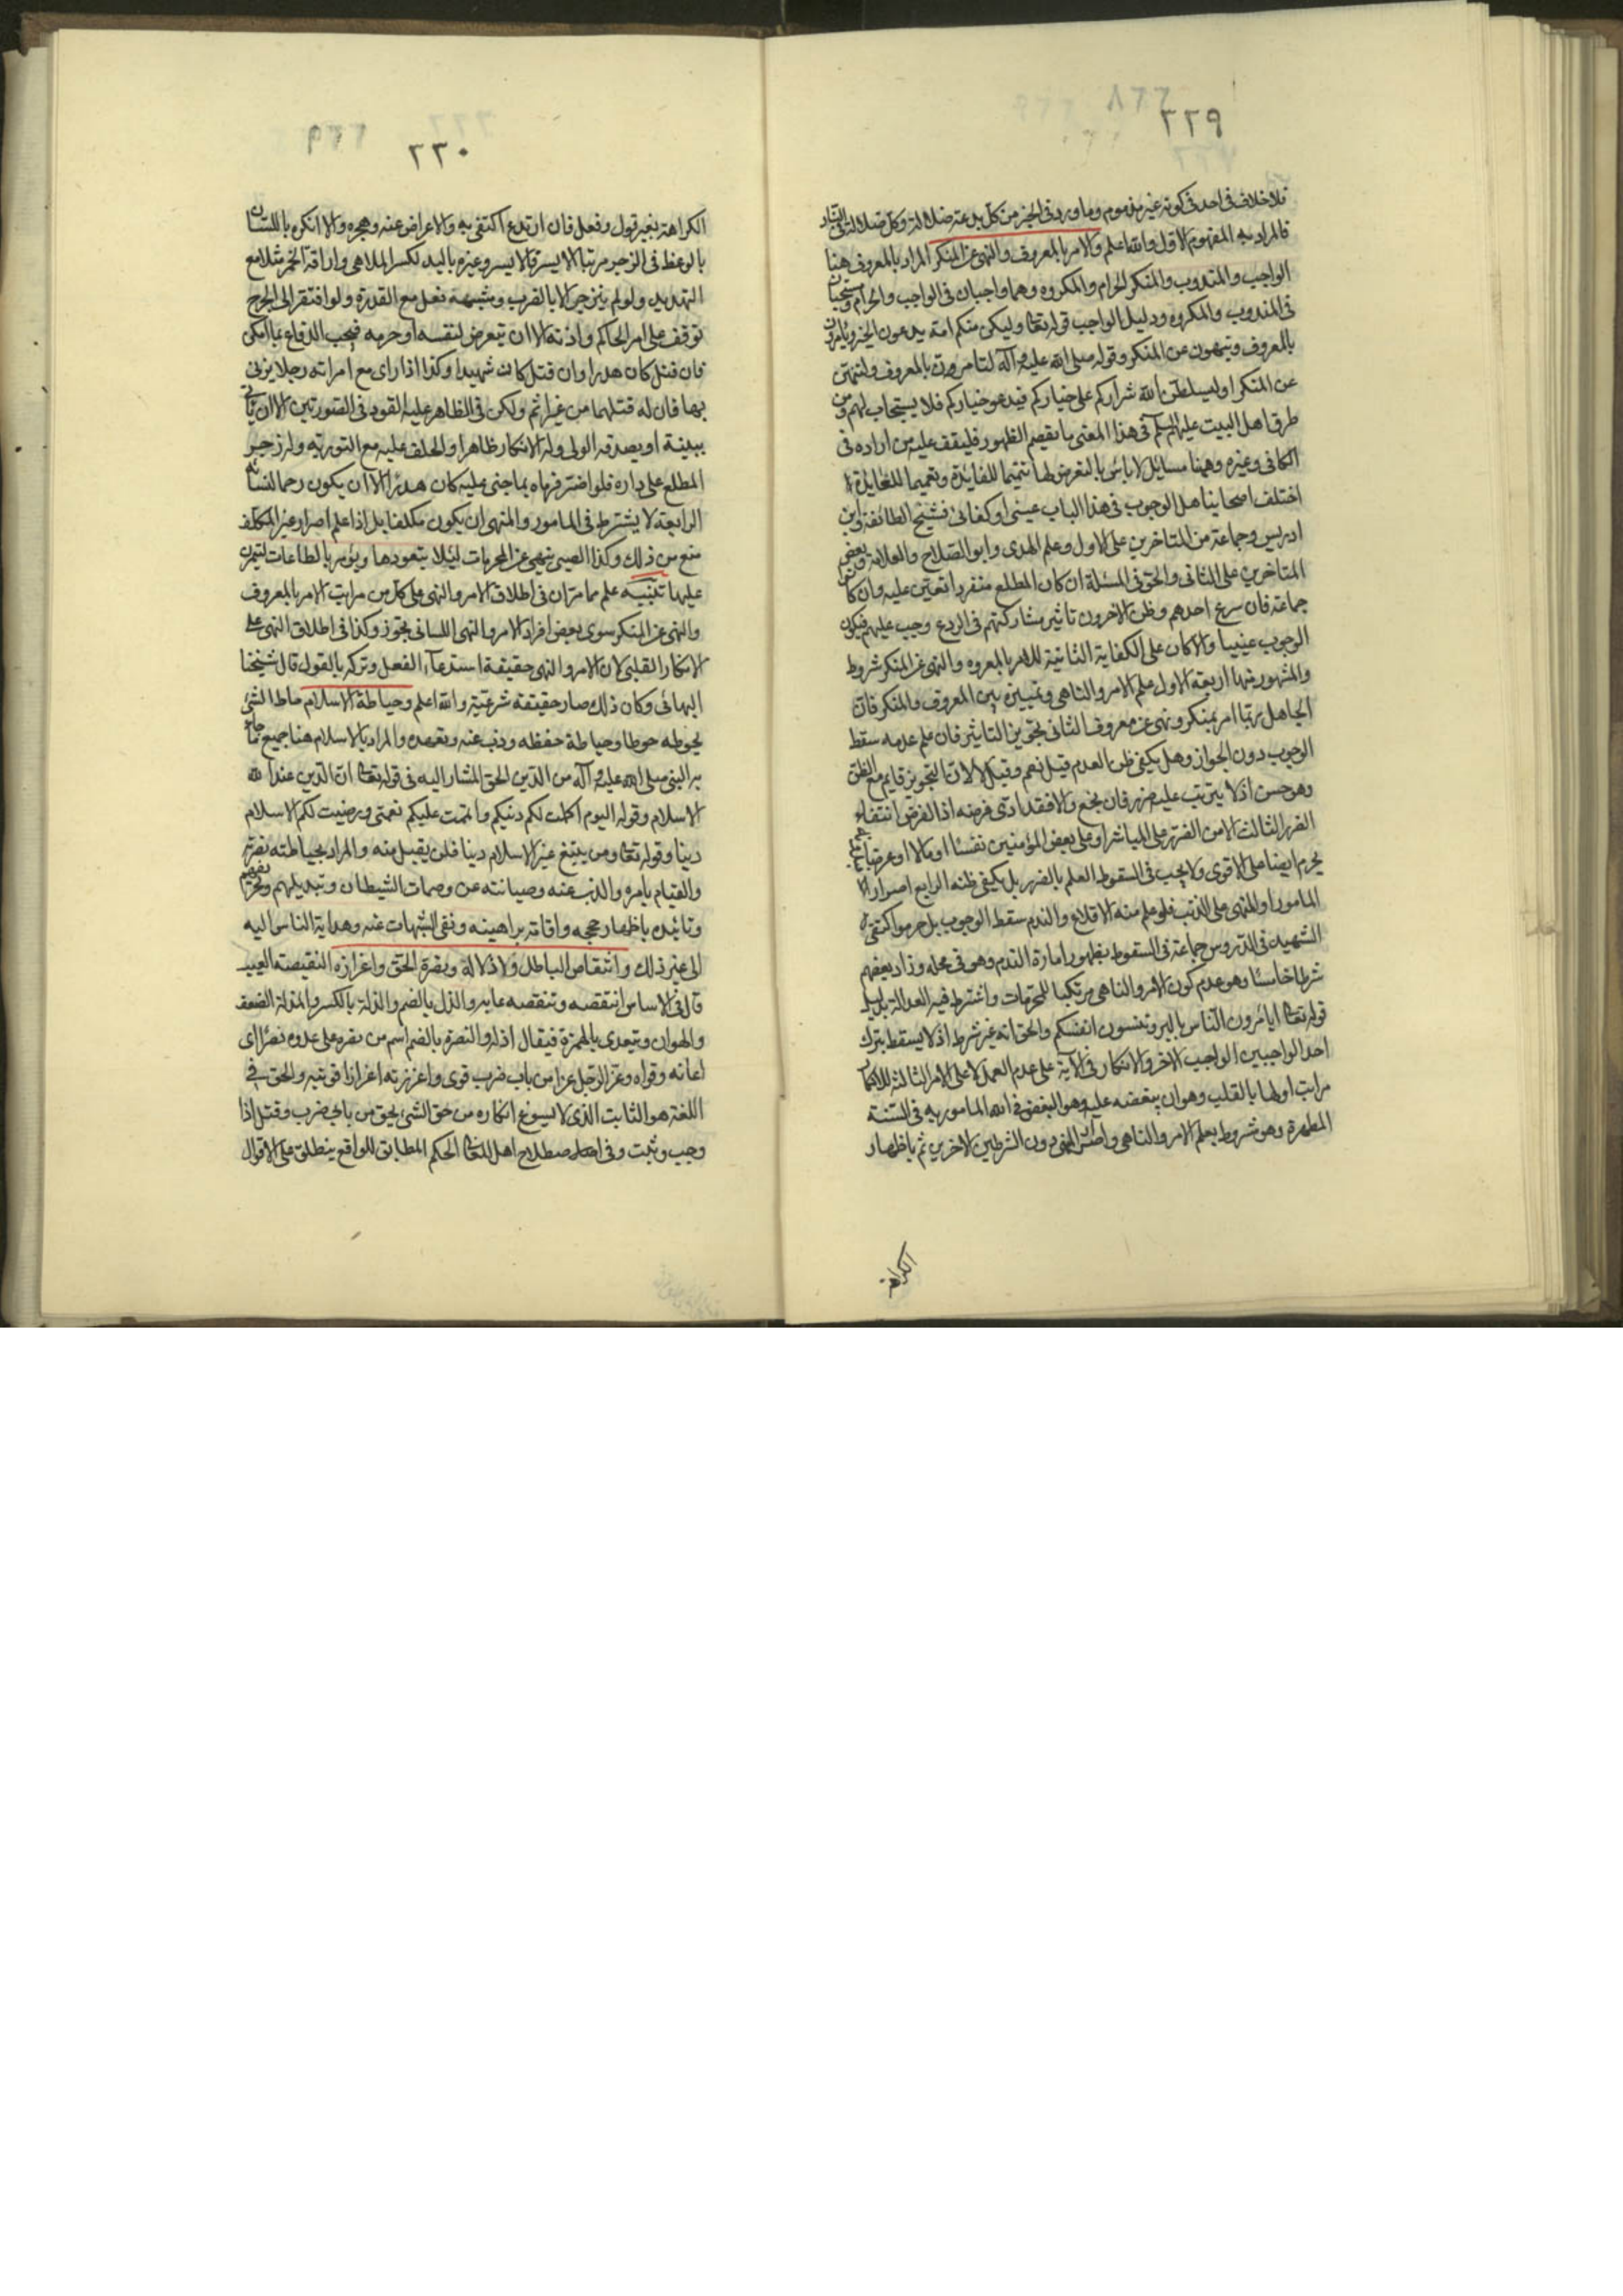 ٢٢٩
فلا خلاف في احد في كونه غير مذموم وما ورد في الخبر من كل بدعة ضلالة وكل ضلالة في النار
فالمراد به المفهوم الاول والله اعلم والامر بالمعروف والنهى عن المنكر المراد بالمعروف هنا
الواجب والمندوب والمنكر الحرام والمكروه وهما واجبان في الواجب والحرام ومستحبان
في المندوب والمكروه ودليل الواجب قوله تعالى وليكن منكم امة يدعون الى الخير ويامرون
بالمعروف وينهون عن المنكر وقوله صلى الله عليه وآله لتامرون بالمعروف ولتنهن
عن المنكر او ليسلطن الله شراركم على خياركم فيدعو خياركم فلا يستجاب لهم ومن
طرق اهل البيت عليهم السلم في هذا المعنى ما يقصم الظهور فليقف عليه من اراده في
الكافي وغيره وههنا مسايل لا باس بالتعرض لها تتميما للفايدة وتعميما للعايدة ا
اختلف اصحابنا هل الوجوب في هذا الباب عيني او كفائي فشيخ الطائفة وابن
ادريس وجماعة من المتاخرين على الاول وعلم الهدى وابو الصلاح والعلامة وبعض
المتاخرين على الثاني والحق في المسئلة ان كان المطلع منفردا تعين عليه وان كان
جماعة فان سرع احدهم وظن الاخرون تاثير مشاركتهم في الردع وجب عليهم فيكون
الوجوب عينيا والا كان على الكفاية الثانية للامر بالمعروه والنهى عن المنكر شروط
والمشهور منها اربعة الاول علم الامر والناهى وتمييزه بين المعروف والمنكر فان
الجاهل ربما امر بمنكر ونهى عن معروف الثاني تجويز التاثير فان علم عدمه سقط
الوجوب دون الجواز وهل يكفي ظن العدم قيل نعم وقيل لا لان التجويز قايم مع الظن
وهو حسن اذ لا يترتب عليه ضرر فان نجع والا فقد ادى فرضه اذ الفرض انتفاء
الضرر الثالث الامن الضرر على المباشر او على بعض المؤمنين نفسا او مالا او عرضا
يحرم ايضا على الاقوى ولا يجب في السقوط العلم بالضرر بل يكفي ظنه الرابع اصرار
المامور او المنهى على الذنب فلو علم منه الاقلاع والندم سقط الوجوب بل حرم واكتفى
الشهيد في الدروس جماعة في السقوط بظهور امارة الندم وهو في محله وزاد بعضهم
شرطا خامسا وهو عدم كون الامر والناهى مرتكبا للمحرمات واشترط فيه العدالة بدليل
قوله تعالى اتامرون الناس بالبر وتنسون انفسكم والحق انه غير شرط اذ لا يسقط بترك
احد الواجبين الواجب الاخر والانكار في الآية على عدم العمل لا على الامر الثالثة للانكار
مراتب اولها بالقلب وهو ان يبغضه عليه وهو البغض في الله المامور به في السنة
المطهرة وهو مشروط بعلم الامر والناهى واصرار المنهى دون الشرطين الاخرين ثم باظهار
الكراهة
٢٣٠
الكراهة بغير قول وفعل فان ارتدع اكتفى به والاعراض عنه وهجره والا انكره باللسان
بالوعظ في الزجر مرتبا الايسر فالايسر وغيره باليد لكسر الملاهي واراقة الخمر مثلا مع
التهديد ولو لم ينزجر الا بالضرب وشبهه فعل مع القدرة ولو افتقر الى الجرح
توقف على امر الحاكم واذنه الا ان يتعرض لنفسه او حرمه فيجب الدفاع بما امكن
فان قتل كان هدرا وان قتل كان شهيدا وكذا اذا راى مع امراته رجلا يزنى
بها فان له قتلهما من غير اثم ولكن في الظاهر عليه القود في الصورتين الا ان ياتى
ببينة او يصدقه الولي وله الانكار ظاهرا والحلف عليه مع التورية وله زجر
المطلع على داره فلو اصر فرماه بما جنى عليه كان هدرا الا ان يكون رحما لنسائه
الرابعة لا يشترط في المامور والمنهى ان يكون مكلفا بل اذا علم اصرار غير المكلف
منع من ذلك وكذا الصبى ينهى عن المحرمات ليلا يتعودها ويؤمر بالطاعات ليتمرن
عليها تنبيه علم مما مر ان في اطلاق الامر والنهى على كل من مراتب الامر بالمعروف
والنهى عن المنكر سوى بعض افراد الامر والنهى اللساني تجوز وكذا في اطلاق النهى على
الانكار القلبى لان الامر والنهى حقيقة استدعاء الفعل وتركه بالقول قال شيخنا
البهائى وكان ذلك صار حقيقة شرعية والله اعلم وحياطة الاسلام حاط الشئ
يحوطه حوطا وحياطة حفظه وذب عنه وتعهده والمراد بالاسلام هنا جميع ما جاء
به النبى صلى الله عليه وآله من الدين الحق المشار اليه في قوله تعالى ان الدين عند الله
الاسلام وقوله اليوم اكملت لكم دينكم واتممت عليكم نعمتى ورضيت لكم الاسلام
دينا وقوله تعالى ومن يبتغ غير الاسلام دينا فلن يقبل منه والمراد بحياطته نصرته
والقيام بامره والذب عنه وصيانته عن وصمات الشيطان وتبديلهم
وتائيده باظهار حججه واقامة براهينه ونفى الشبهات عنه وهداية الناس اليه
الى غير ذلك وانتقاص الباطل واذلاله ونصرة الحق واعزازه النقيصة العيب
قال في الاساس انتقصه وتنقصه عابه والذل بالضم والذلة بالكسر والمذلة الضعف
والهوان ويتعدى بالهمزة فيقال اذله والنصرة بالضم اسم من نصره على عدوه نصرا اى
اعانه وقواه وعز الرجل عزا من باب ضرب قوى واعززته اعزازا قويته والحق في
اللغة هو الثابت الذى لا يسوغ انكاره من حق الشئ يحق من بابى ضرب وقتل اذا
وجب وثبت وفى اصطلاح اهل الحكم المطابق للواقع ينطلق على الاقوال